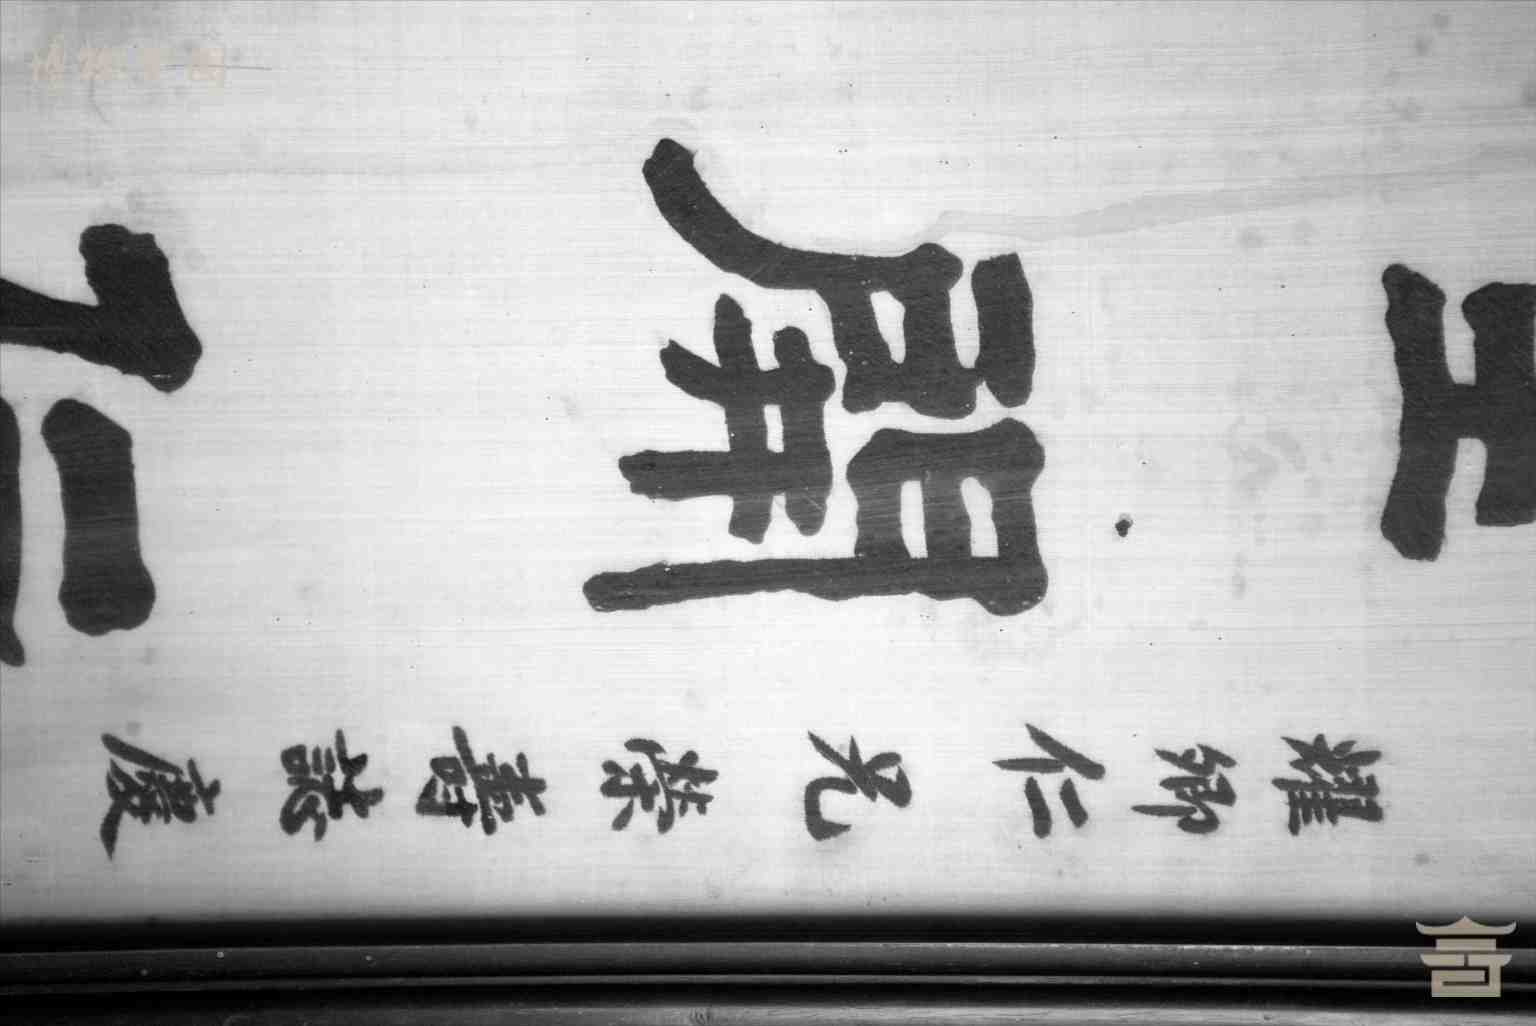 耀卿仁兄榮壽誌慶
開